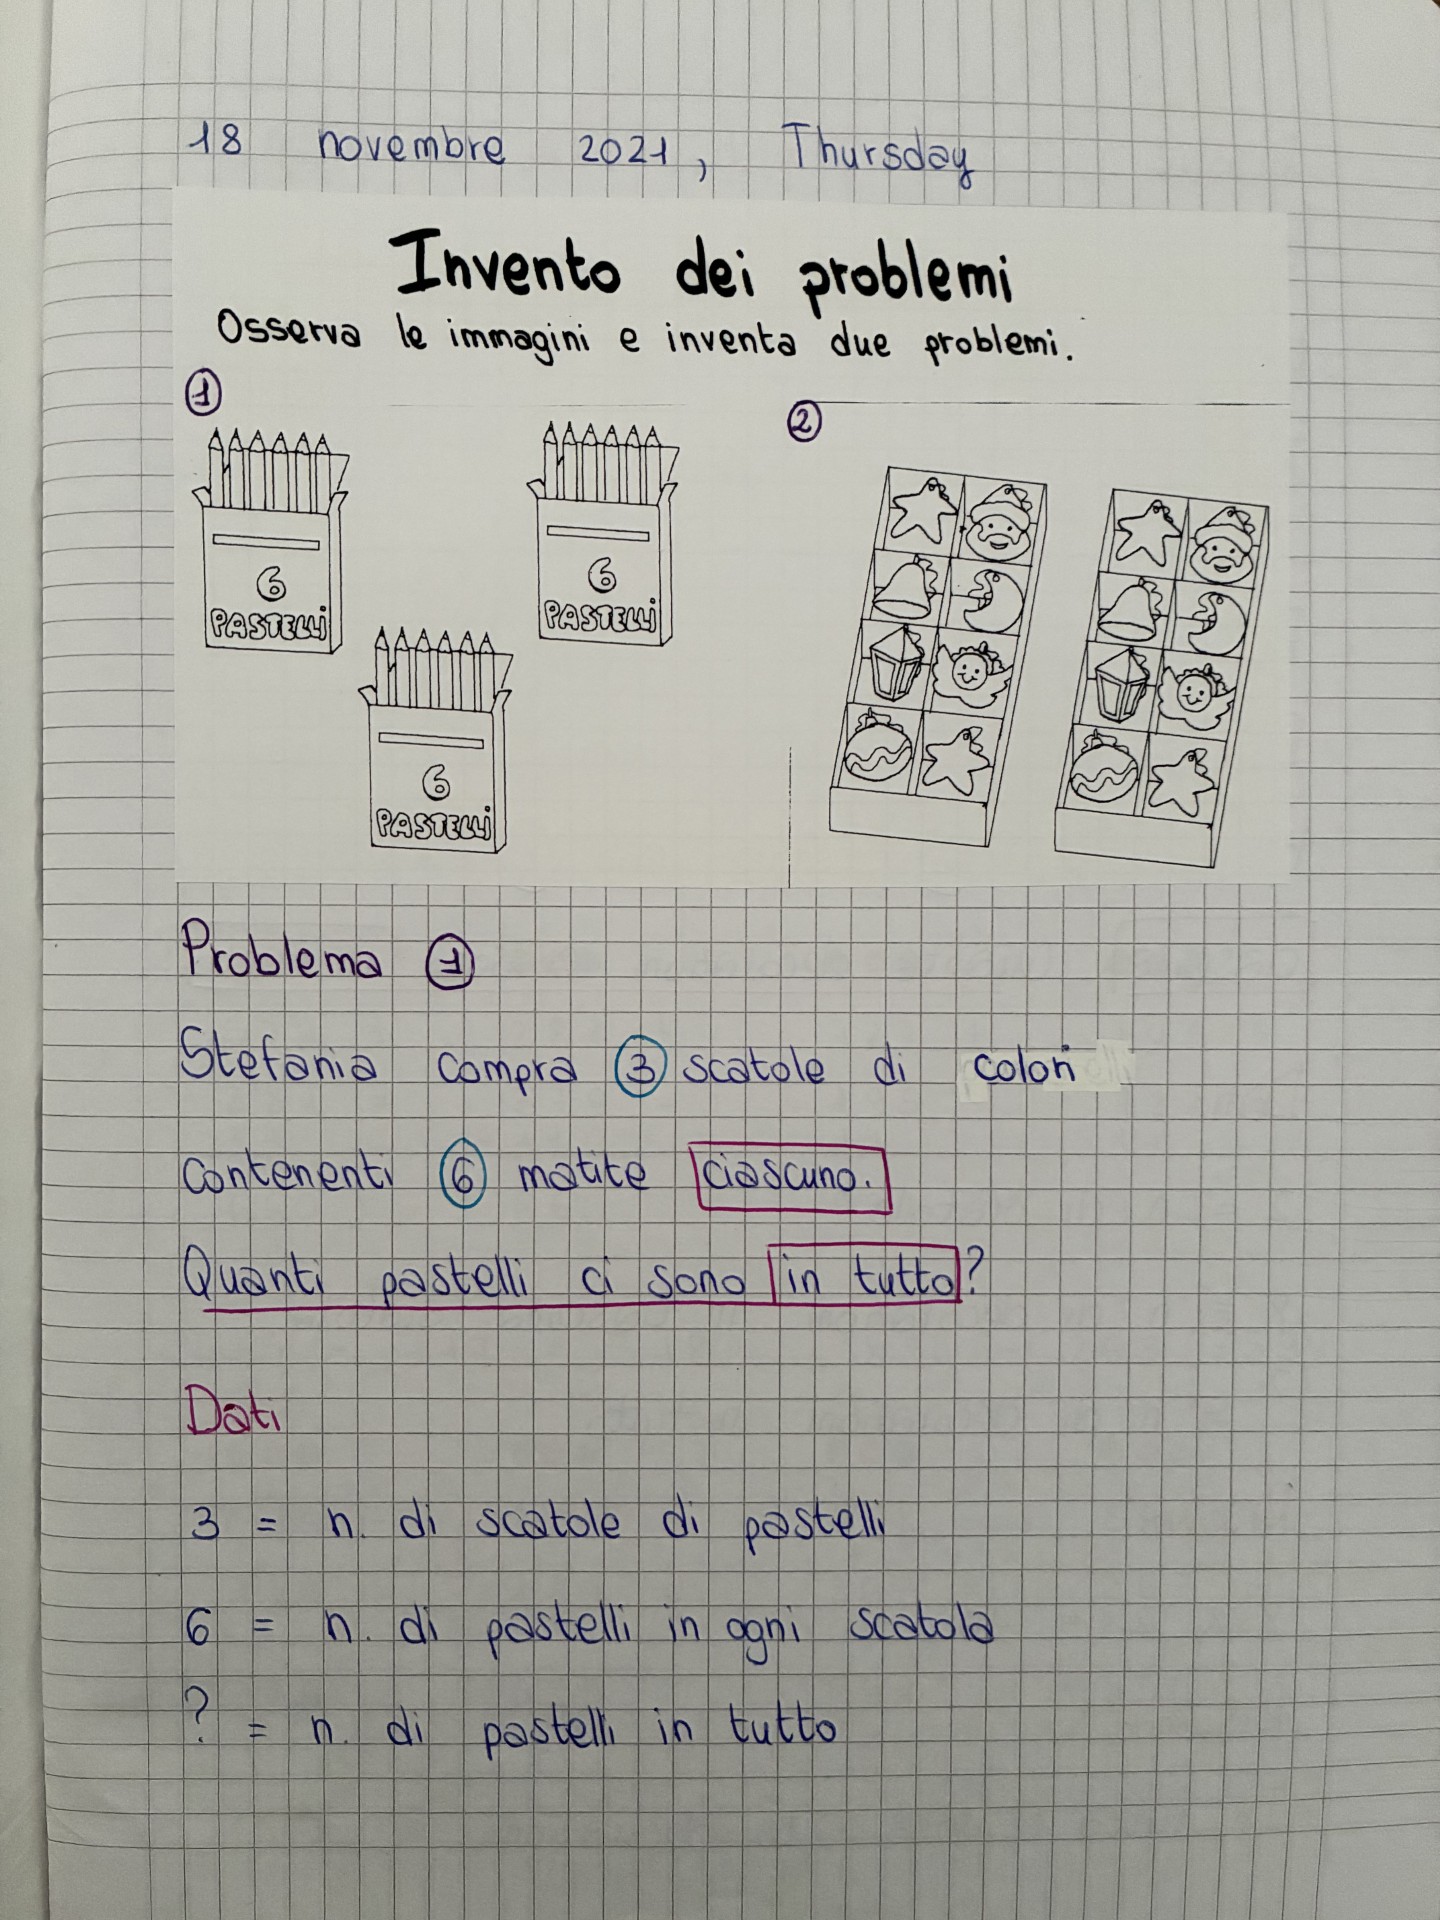 18 novembre 2021, Thursday
Invento dei problemi
Osserva le immagini e inventa due problemi.
1
2
6
PASTELLI
6
PASTELLI
6
PASTELLI
Problema 1
Stefania compra 3 scatole di colori
contenenti 6 matite ciascuno.
Quanti pastelli ci sono in tutto?
Dati
3 = n. di scatole di pastelli
6 = n. di pastelli in ogni scatola
? = n. di pastelli in tutto